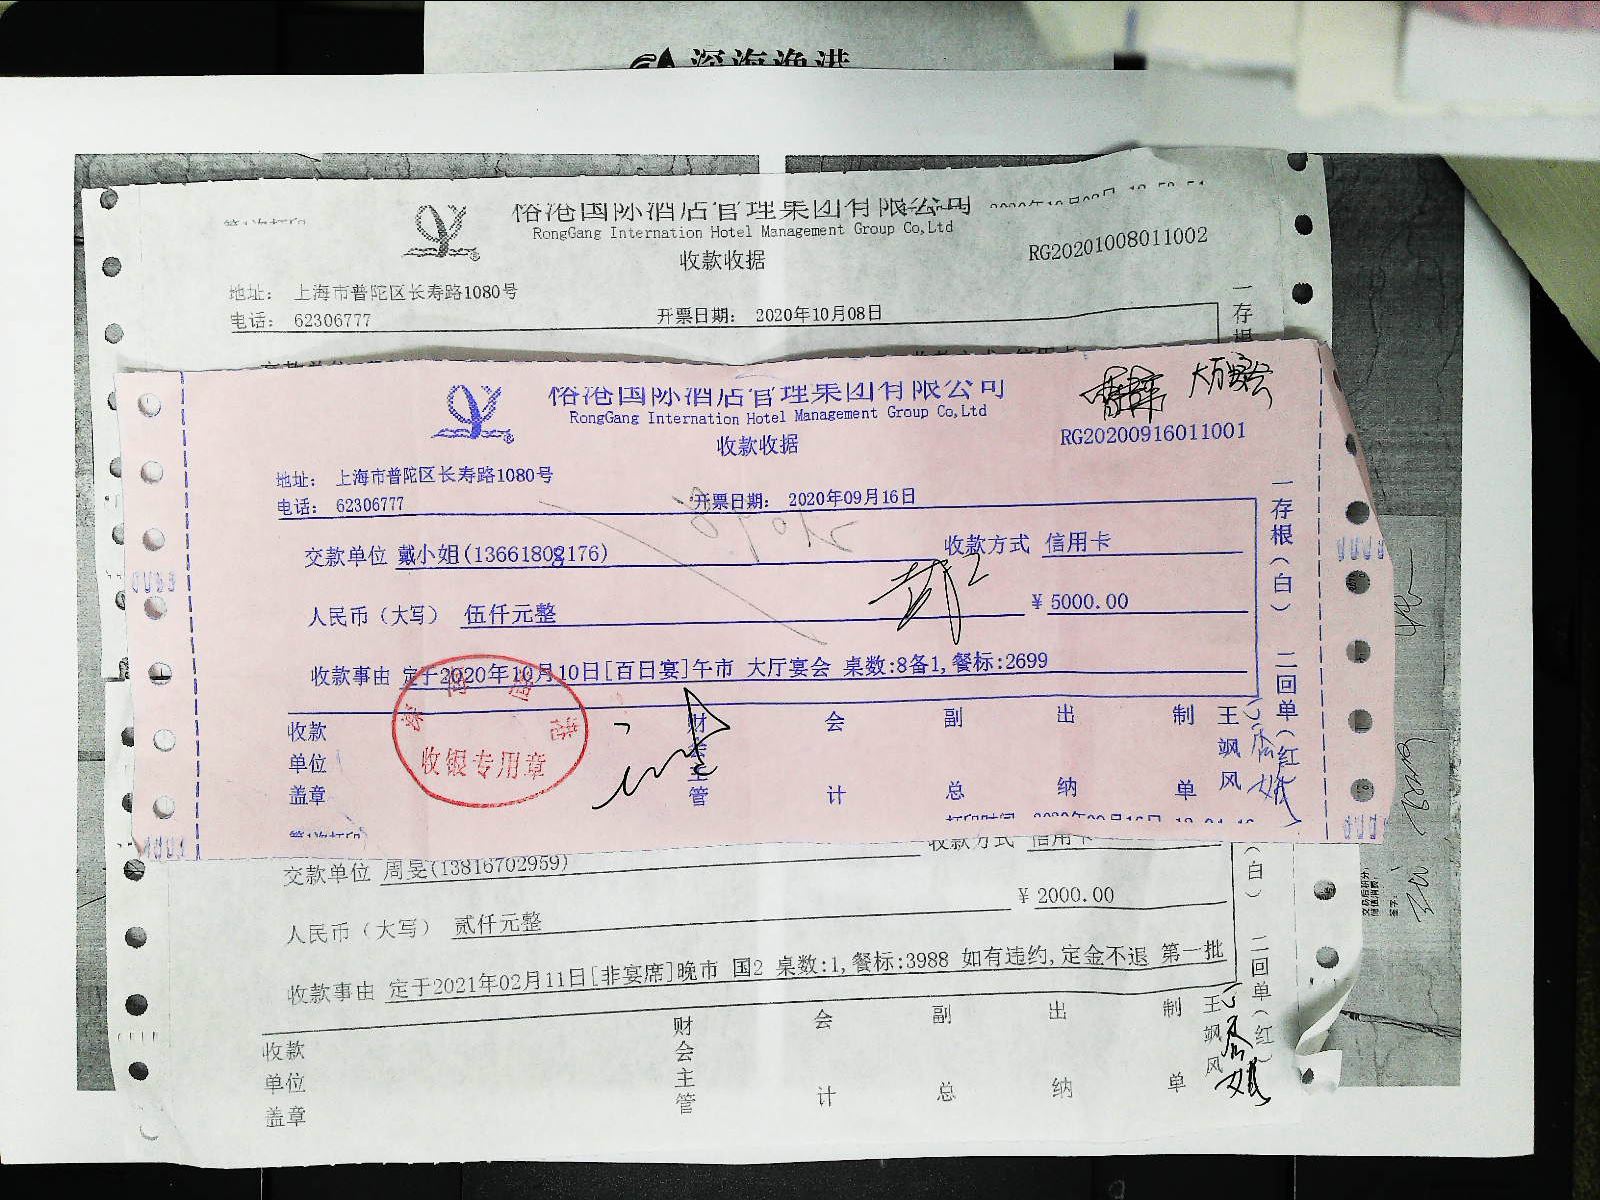 深海渔港
裕港国际酒店管理集团有限公司
RongGang Internation Hotel Management Group Co,Ltd
收款收据
RG20201008011002
地址: 上海市普陀区长寿路1080号
电话: 62306777
开票日期: 2020年10月08日
一存根
裕港国际酒店管理集团有限公司
RongGang Internation Hotel Management Group Co,Ltd
大厅宴会
收款收据
RG20200916011001
地址: 上海市普陀区长寿路1080号
电话: 62306777
开票日期: 2020年09月16日
交款单位 戴小姐(13661808176)
收款方式 信用卡
人民币(大写) 伍仟元整
¥ 5000.00
收款事由 定于2020年10月10日[百日宴]午市 大厅宴会 桌数:8备1,餐标:2699
一存根(白) 二回单(红)
收款单位盖章
收银专用章
财会主管
会计
副总
出纳
制单
王飒风
第1次打印
交款单位 周旻(13816702959)
收款方式 信用卡
人民币(大写) 贰仟元整
¥ 2000.00
收款事由 定于2021年02月11日[非宴席]晚市 国2 桌数:1,餐标:3988 如有违约,定金不退 第一批
(白) 二回单(红)
收款单位盖章
财会主管
会计
副总
出纳
制单
王飒风